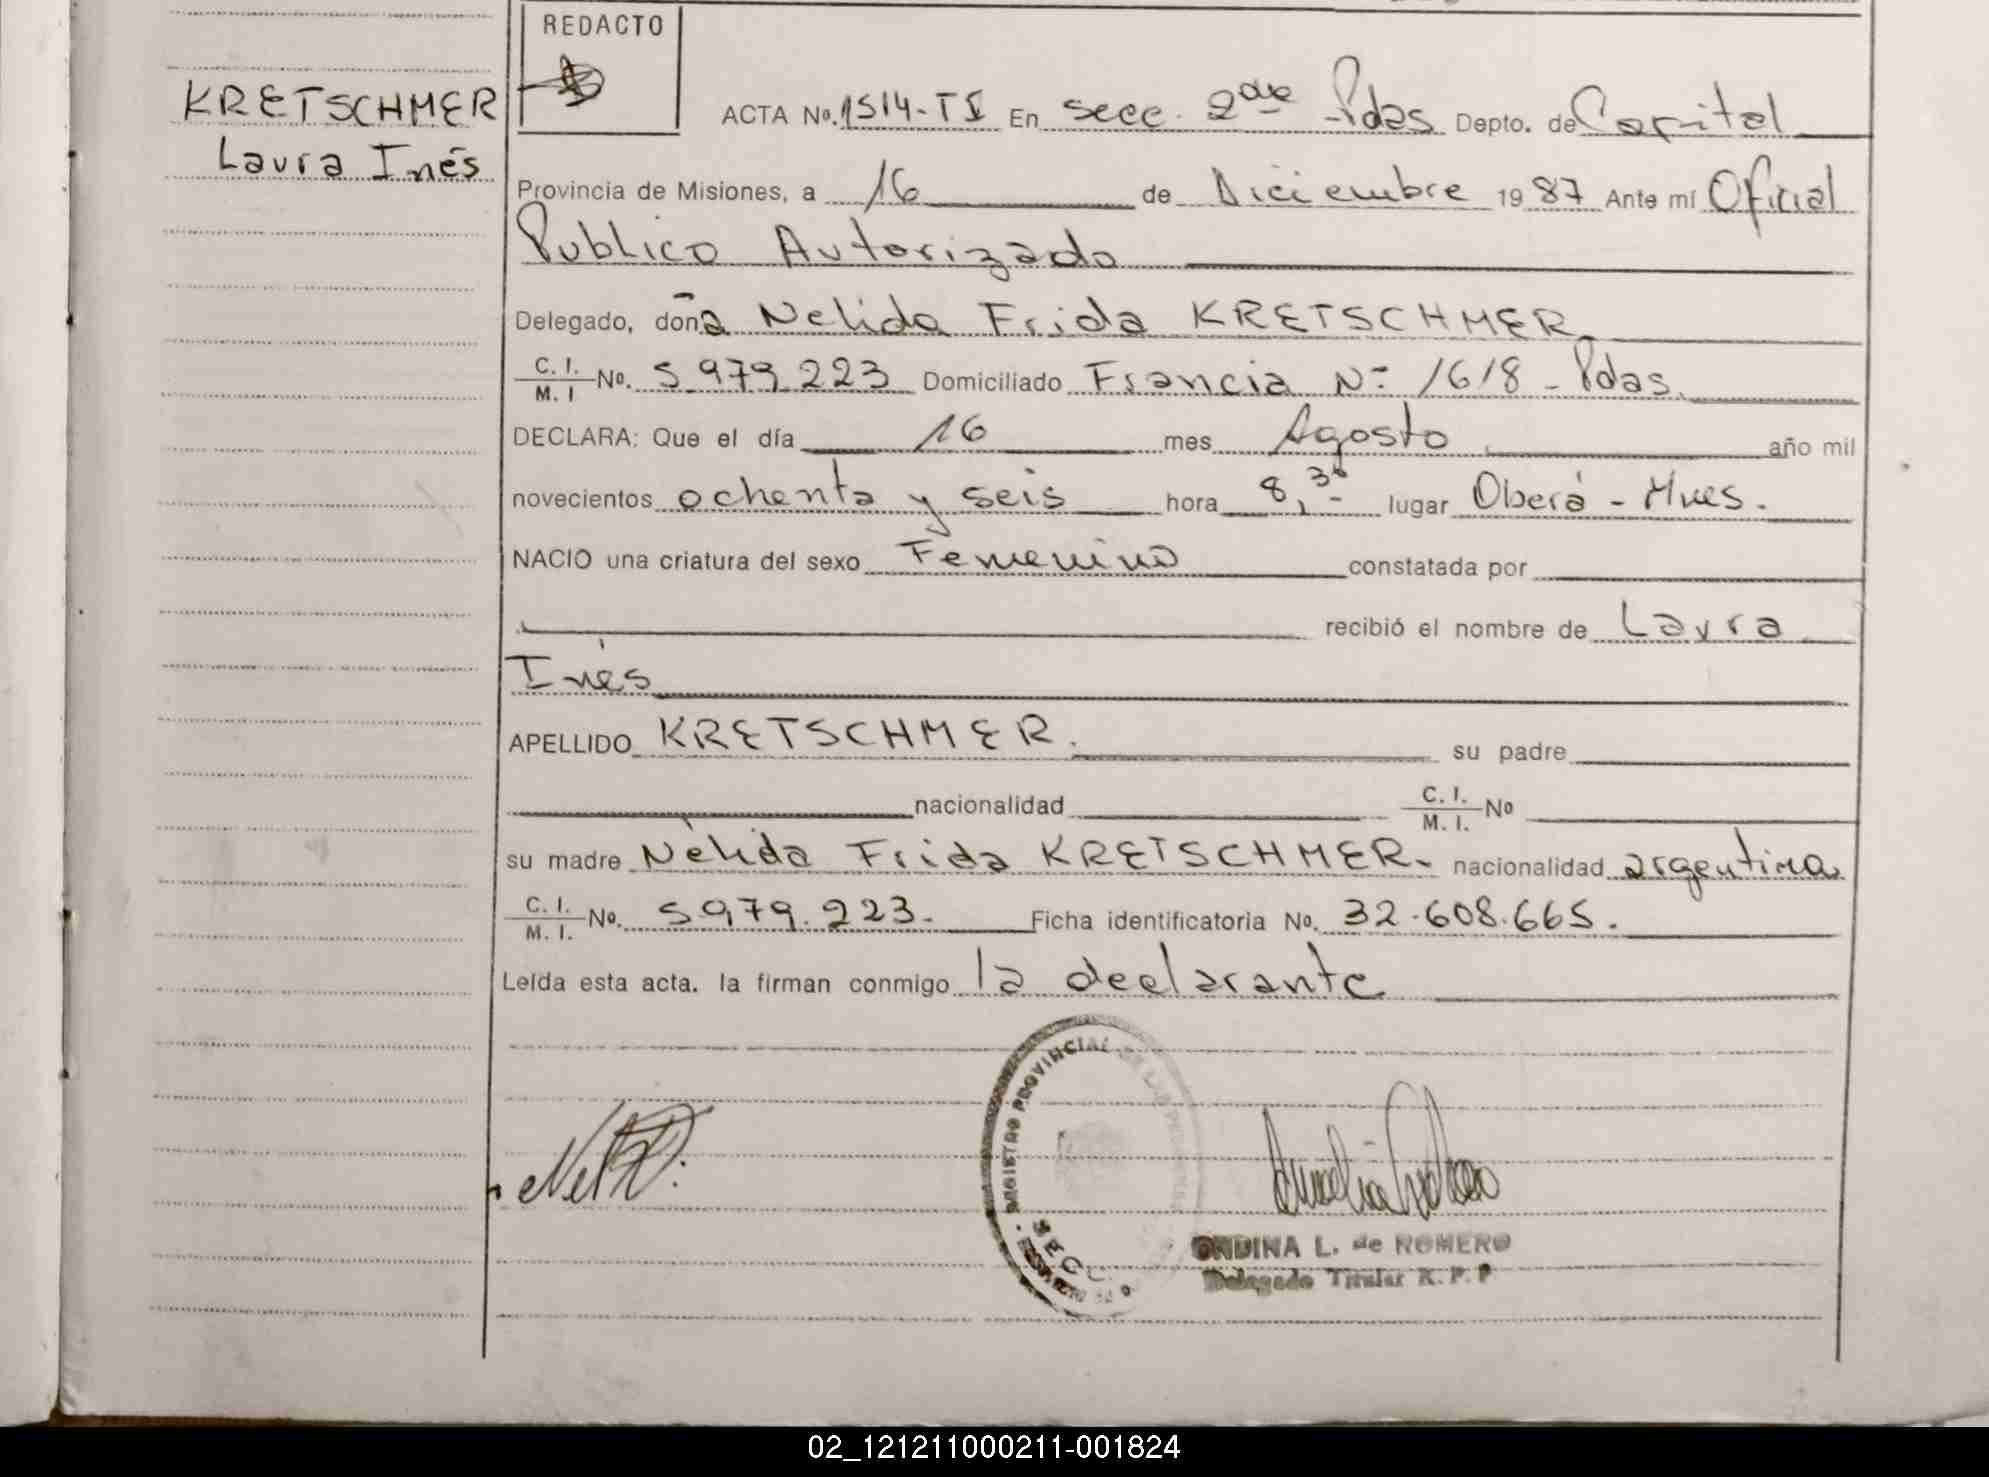 REDACTO
KRETSCHMER
Laura Inés
ACTA No. 1514-TI En secc. 2da Pdas Depto. de Capital
Provincia de Misiones, a 16 de Diciembre 1987 Ante mí Oficial
Publico Autorizado
Delegado, doña Nelida Frida KRETSCHMER
C. I. / M. I No. 5.979.223 Domiciliado Francia Nº 1618 - Pdas.
DECLARA: Que el día 16 mes Agosto año mil
novecientos ochenta y seis hora 8,30 lugar Oberá - Mnes.
NACIO una criatura del sexo Femenino constatada por
recibió el nombre de Laura
Inés
APELLIDO KRETSCHMER. su padre
nacionalidad C. I. / M. I. No
su madre Nélida Frida KRETSCHMER. nacionalidad argentina
C. I. / M. I. No. 5.979.223. Ficha identificatoria No. 32.608.665.
Leída esta acta. la firman conmigo la declarante
REGISTRO PROVINCIAL DE LAS PERSONAS
SECC.
ONDINA L. de ROMERO
Delegado Titular R. P. P
02_121211000211-001824